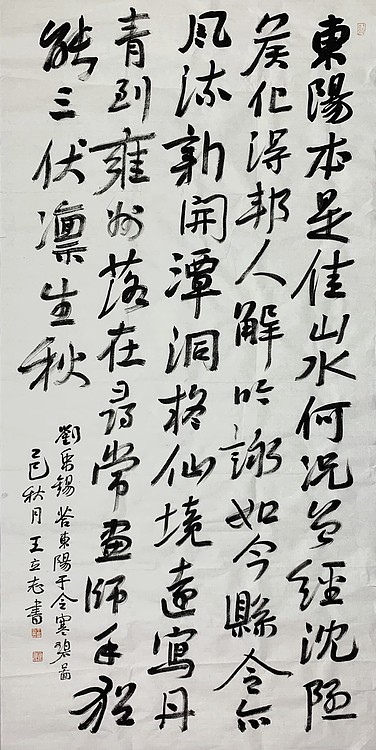 東陽本是佳山水何況曾經沈隱
侯化得邦人解吟詠如今縣令亦
風流新開潭洞疑仙境遠寫丹
青到雍州落在尋常畫師手猶
能三伏凜生秋
劉禹錫答東陽于令寒碧圖
乙巳秋月王立志書